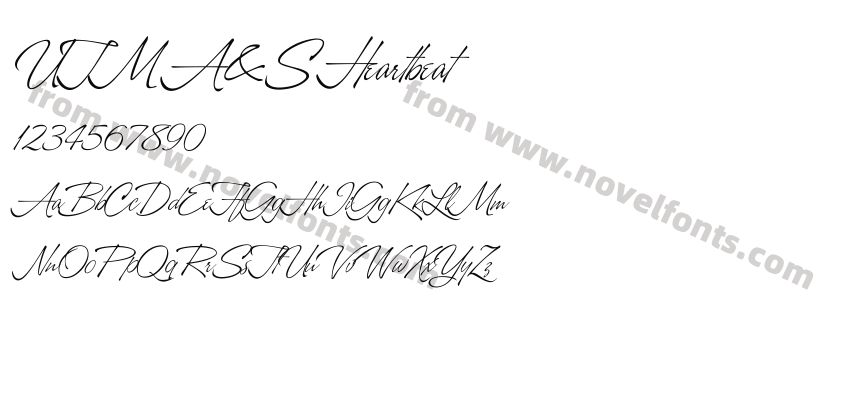 UTM A&S Heartbeat
1234567890
AaBbCcDdEeFfGgHhIiGgKkLlMm
NnOoPpQqRrSsTtUuVvWwXxYyZz
from www.novelfonts.com
from www.novelfonts.com